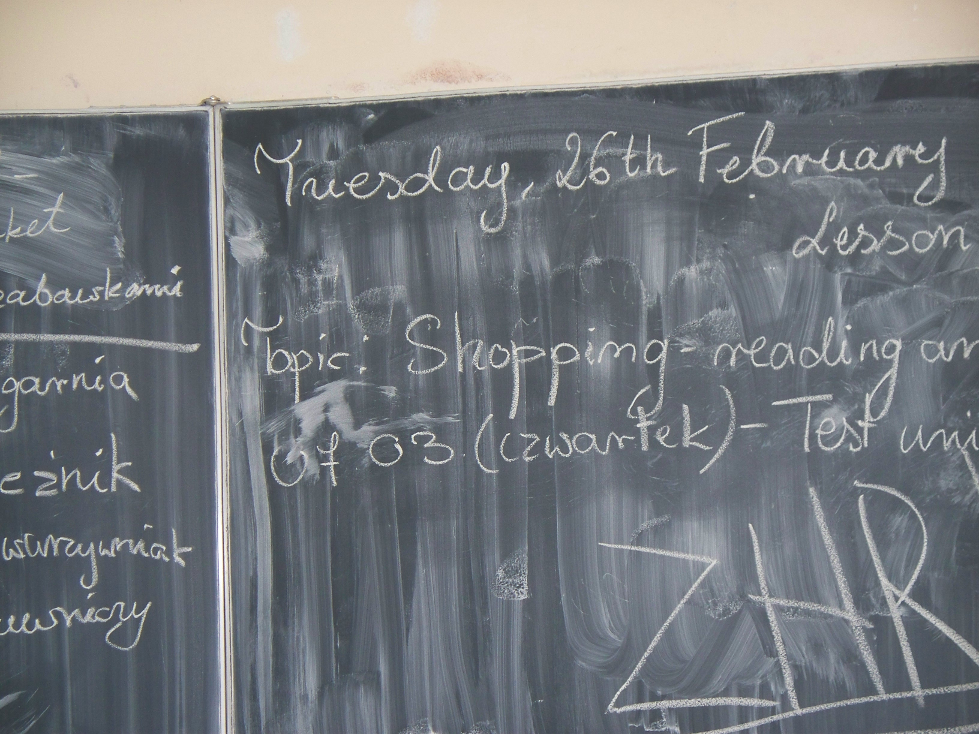 ket
zabawkami
garnia
eźnik
warzywniak
Tuesday, 26th February
Lesson
Topic: Shopping - reading an
07 03 (czwartek) - Test uni
ZHR